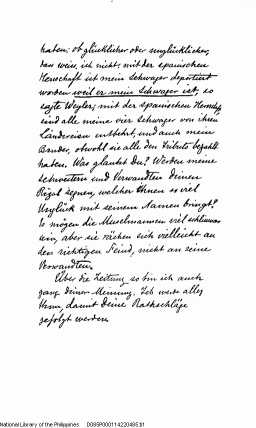 haben; ob glücklicher oder unglücklicher,
das weiss ich nicht; mit der spanischen
Herrschaft ist mein Schwager deportiert
worden weil er mein Schwager ist, so
sagte Weyler; mit der spanischen Herrschaft
sind alle meine vier Schwager von ihren
Ländereien entbehrt, und auch mein
Bruder, obwohl sie alle den Tributo bezahlt
haben. Was glaubst Du? Werden meine
Schwestern und Verwandten deinen
Rizal segnen, welcher Ihnen so viel
Unglück mit seinem Namen bringt?
So mögen die Muselmannen viel schlimmer
sein, aber sie rächen sich vielleicht an
den richtigen Feind, nicht an seine
Verwandten.
Über die Zeitung, so bin ich auch
ganz deiner Meinung. Ich werde alles
thun, damit Deine Rathschläge
gefolgt werden
National Library of the Philippines